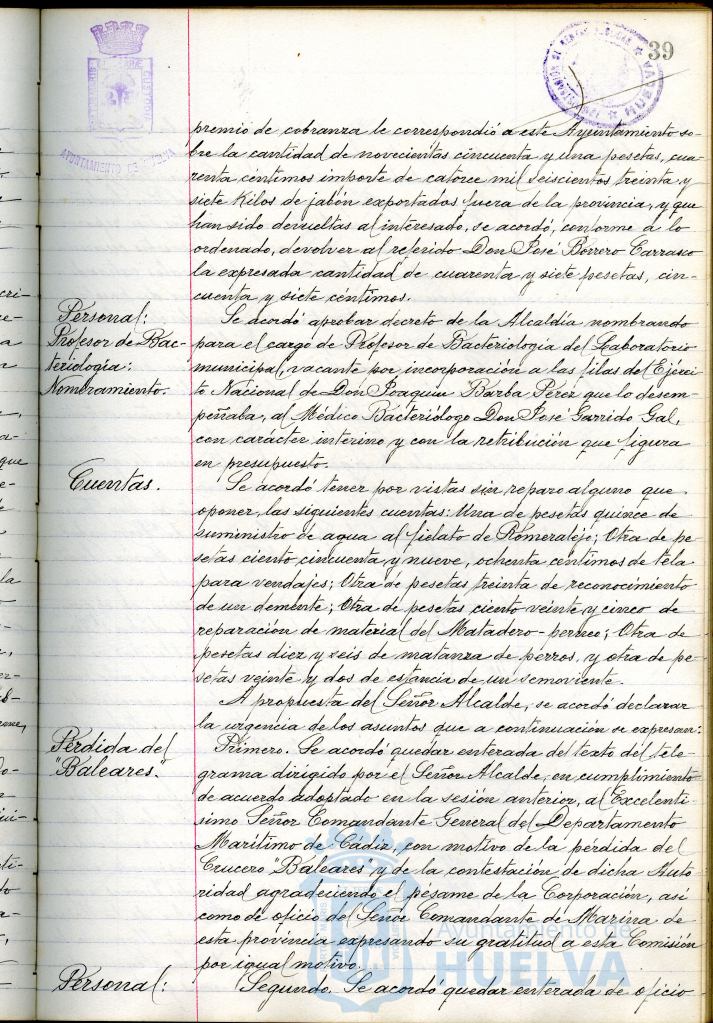 39
AYUNTAMIENTO DE HUELVA
premio de cobranza le correspondió a este Ayuntamiento so-
bre la cantidad de novecientas cincuenta y una pesetas, cua-
renta céntimos importe de catorce mil seiscientos treinta y
siete Kilos de jabón exportados fuera de la provincia, y que
han sido devueltas al interesado, se acordó, conforme a lo
ordenado, devolver al referido Don José Borrero Carrasco
la expresada cantidad de cuarenta y siete pesetas, cin-
cuenta y siete céntimos.
Personal:
Profesor de Bac-
teriología:
Nombramiento.
Se acordó aprobar decreto de la Alcaldía nombrando
para el cargo de Profesor de Bacteriología del Laboratorio
municipal, vacante por incorporación a las filas del Ejérci-
to Nacional de Don Joaquín Barba Pérez que lo desem-
peñaba, al Médico Bacteriólogo Don José Garrido Gal,
con carácter interino y con la retribución que figura
en presupuesto.
Cuentas.
Se acordó tener por vistas sin reparo alguno que
oponer, las siguientes cuentas: Una de pesetas quince de
suministro de agua al fielato de Romeralejo; Otra de pe-
setas ciento cincuenta y nueve, ochenta céntimos de tela
para vendajes; Otra de pesetas treinta de reconocimiento
de un demente; Otra de pesetas ciento veinte y cinco de
reparación de material del Matadero-perneo; Otra de
pesetas diez y seis de matanza de perros, y otra de pe-
setas veinte y dos de estancia de un semoviente.
A propuesta del Señor Alcalde, se acordó declarar
la urgencia de los asuntos que a continuación se expresan:
Pérdida del
"Baleares".
Primero. Se acordó quedar enterada del texto del tele-
grama dirigido por el Señor Alcalde, en cumplimiento
de acuerdo adoptado en la sesión anterior, al Excelentí-
simo Señor Comandante General del Departamento
Marítimo de Cádiz, con motivo de la pérdida del
Crucero "Baleares" y de la contestación de dicha Auto
ridad agradeciendo el pésame de la Corporación, así
como de oficio del Señor Comandante de Marina de
esta provincia expresando su gratitud a esta Comisión
por igual motivo.
Personal:
Segundo. Se acordó quedar enterada de oficio
Ayuntamiento de
HUELVA